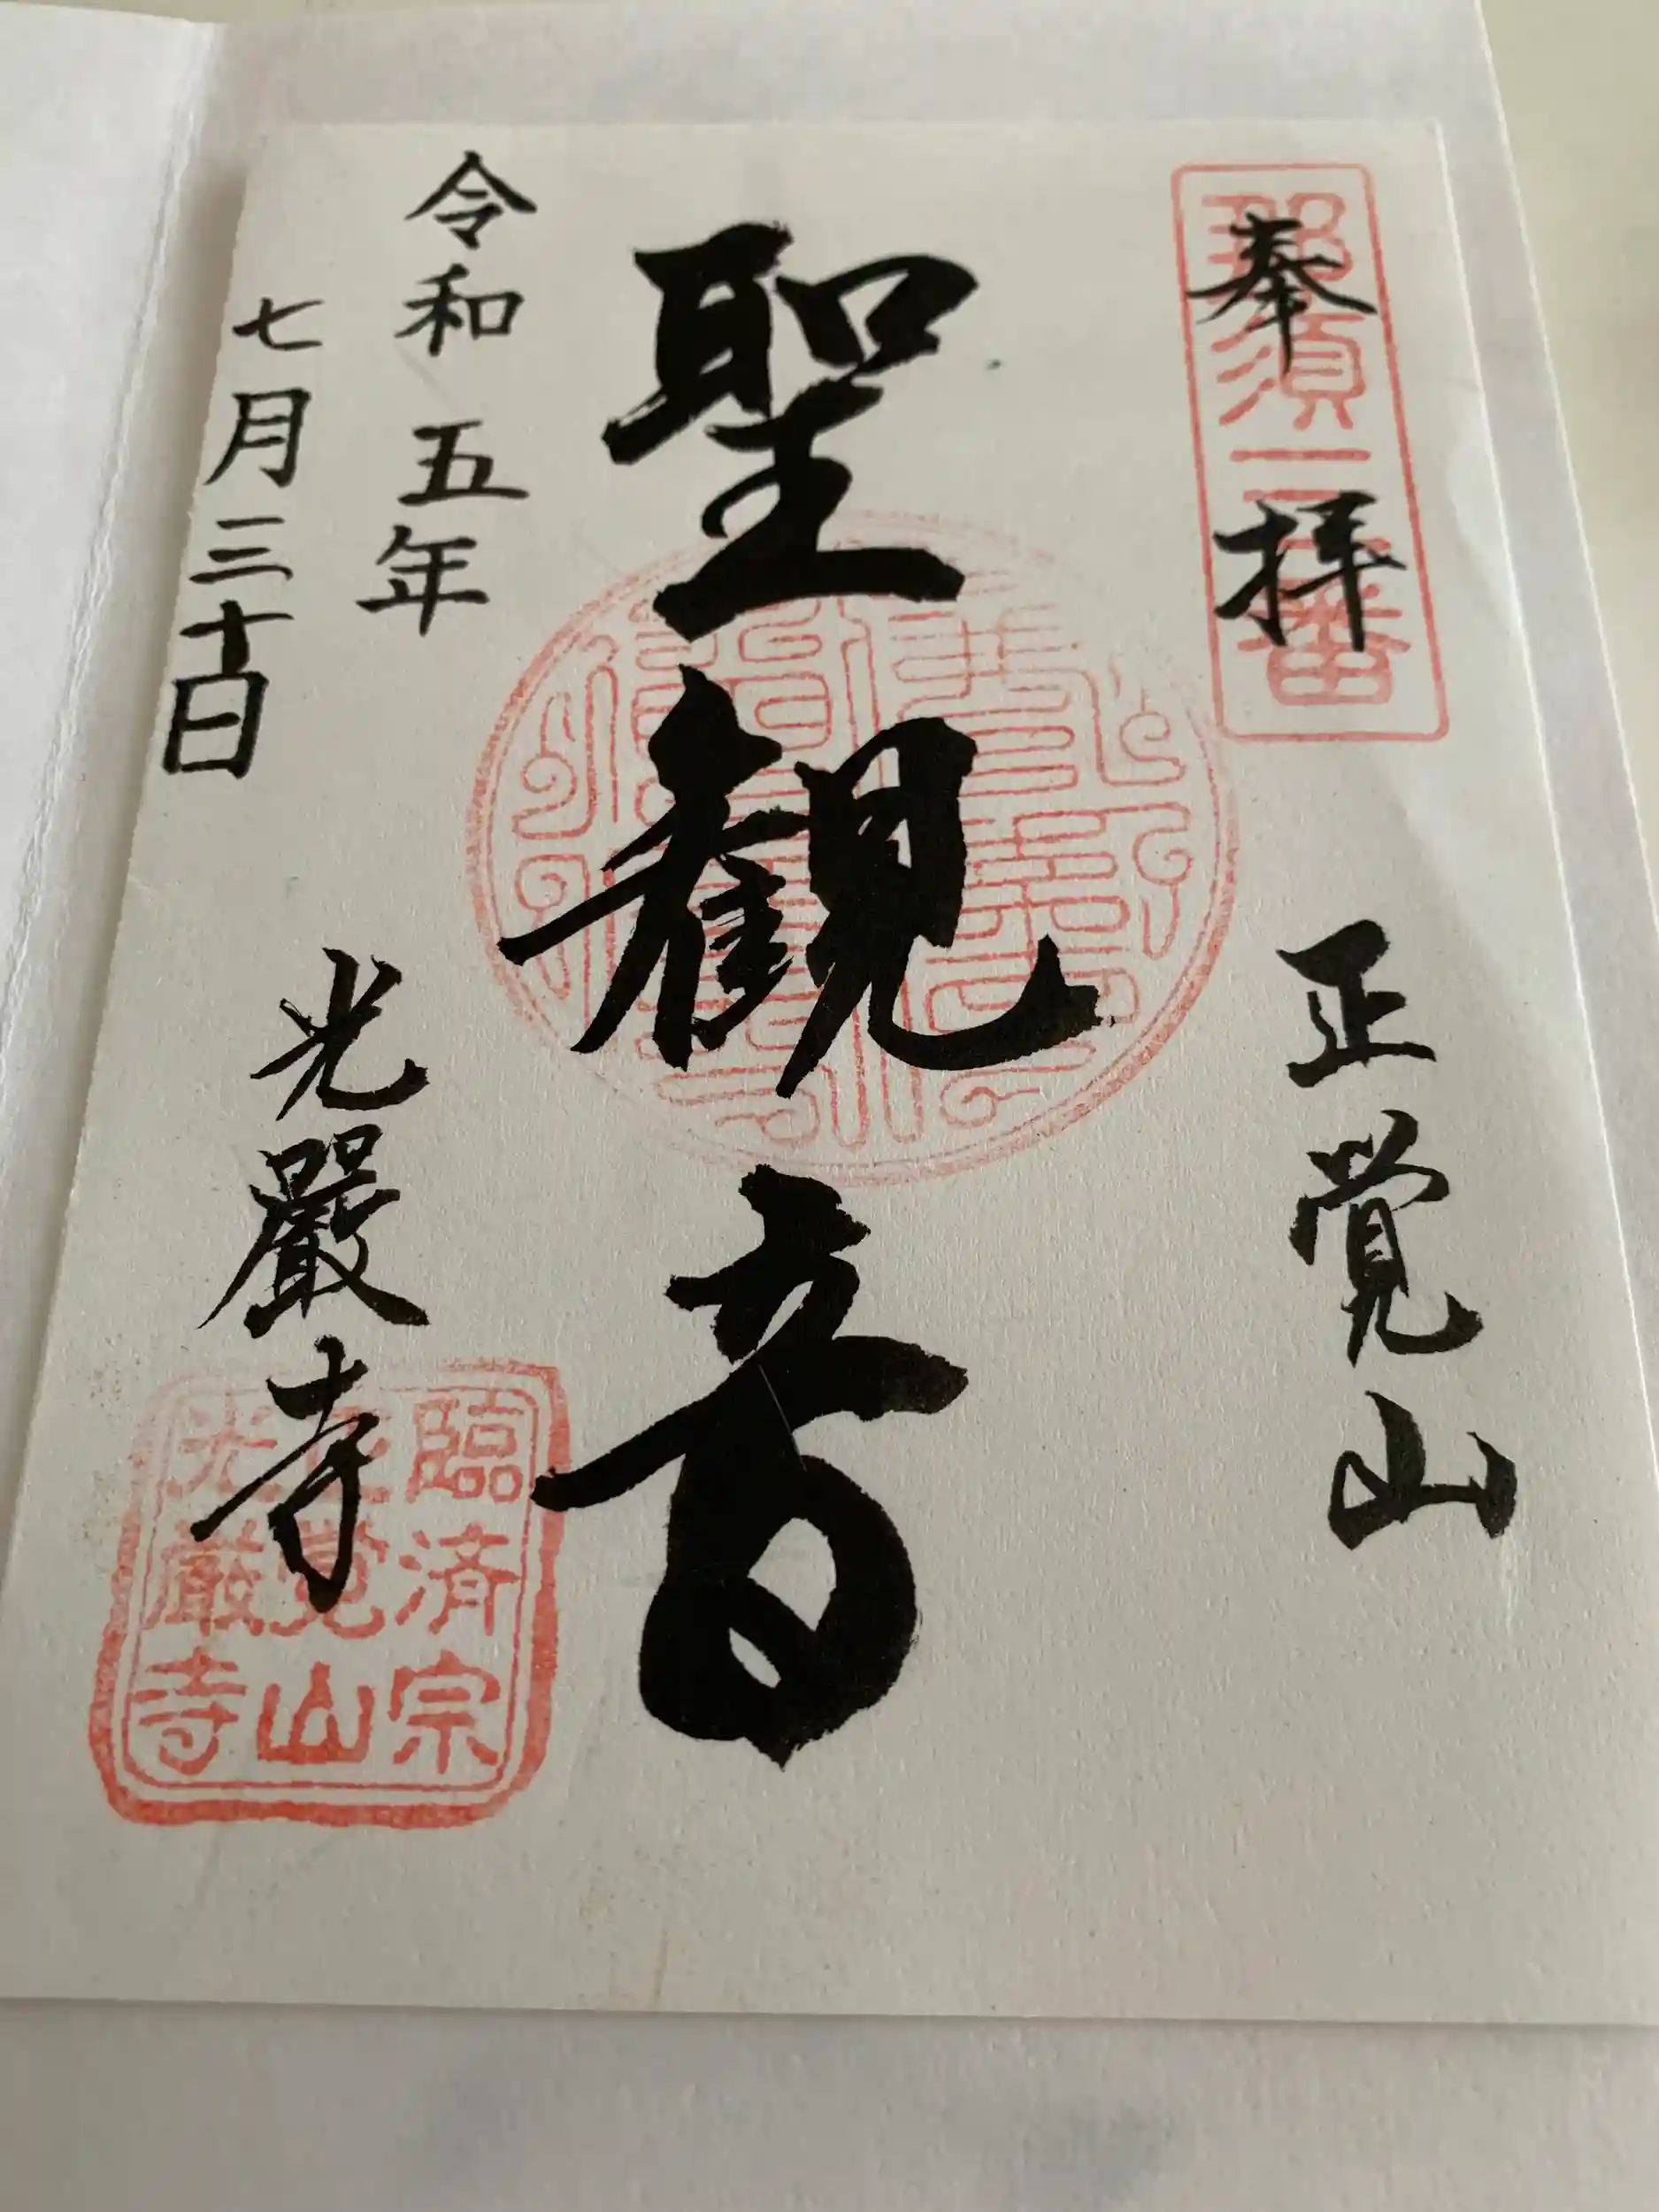 奉拝
正覚山
聖観音
令和五年
七月三十日
光嚴寺
臨済宗
正覚山
光厳寺